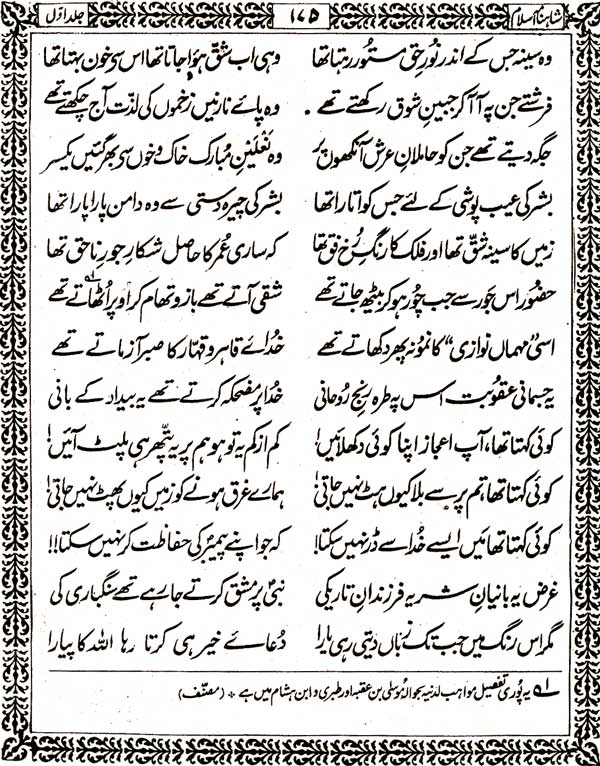 شاہنامۂ اسلام ۱۷۵ جلد اوّل
وہ سینہ جس کے اندر نُورِ حق مستور رہتا تھا وہی اب شق ہؤا جاتا تھا اس سے خون بہتا تھا
فرشتے جن پہ آ آ کر جبینِ شوق رکھتے تھے وہ پائے نازنیں زخموں کی لذّت آج چکھتے تھے
جگہ دیتے تھے جن کو حاملانِ عرش آنکھوں پر وہ نعلینِ مُبارک خاک و خوں سے بھر گئیں یکسر
بشر کی عیب پوشی کے لئے جس کو اُتارا تھا بشر کی چیرہ دستی سے وہ دامن پارا پارا تھا
زمیں کا سینہ شق تھا اور فلک کا رنگِ رُخ فق تھا کہ ساری عُمر کا حاصل شکارِ جورِ ناحق تھا
حضُور اس جَور سے جب چُور ہو کر بیٹھ جاتے تھے شقی آتے تھے بازو تھام کر اوپر اُٹھاتے تھے ۱؎
اسی "مہماں نوازی" کا نمونہ پھر دکھاتے تھے خُدائے قاہر و قہّار کا صبر آزماتے تھے
یہ جسمانی عقوبت اس پہ طرہ رنجِ رُوحانی خدا پر مضحکہ کرتے تھے یہ بیداد کے بانی
کوئی کہتا تھا، آپ اعجاز اپنا کوئی دکھلائیں! کم از کم یہ تو ہو ہم پر یہ پتّھر ہی پلٹ آئیں!
کوئی کہتا تھا، تم پر سے بلا کیوں ہٹ نہیں جاتی! ہمارے غرق ہونے کو زمیں کیوں پھٹ نہیں جاتی!
کوئی کہتا تھا مَیں ایسے خُدا سے ڈر نہیں سکتا! کہ جو اپنے پیمبرؐ کی حفاظت کر نہیں سکتا!!
غرض یہ بانیانِ شر یہ فرزندانِ تاریکی نبیؐ پر مشق کرتے جا رہے تھے سنگباری کی
مگر اس رنگ میں جب تک زباں دیتی رہی یارا دُعائے خیر ہی کرتا رہا اللہ کا پیارا
۱؎ یہ پُوری تفصیل مواہب لدنیہ بحوالہ مُوسٰی بن عقبہ اور طبری و ابن ہشام میں ہے * (مصنّف)